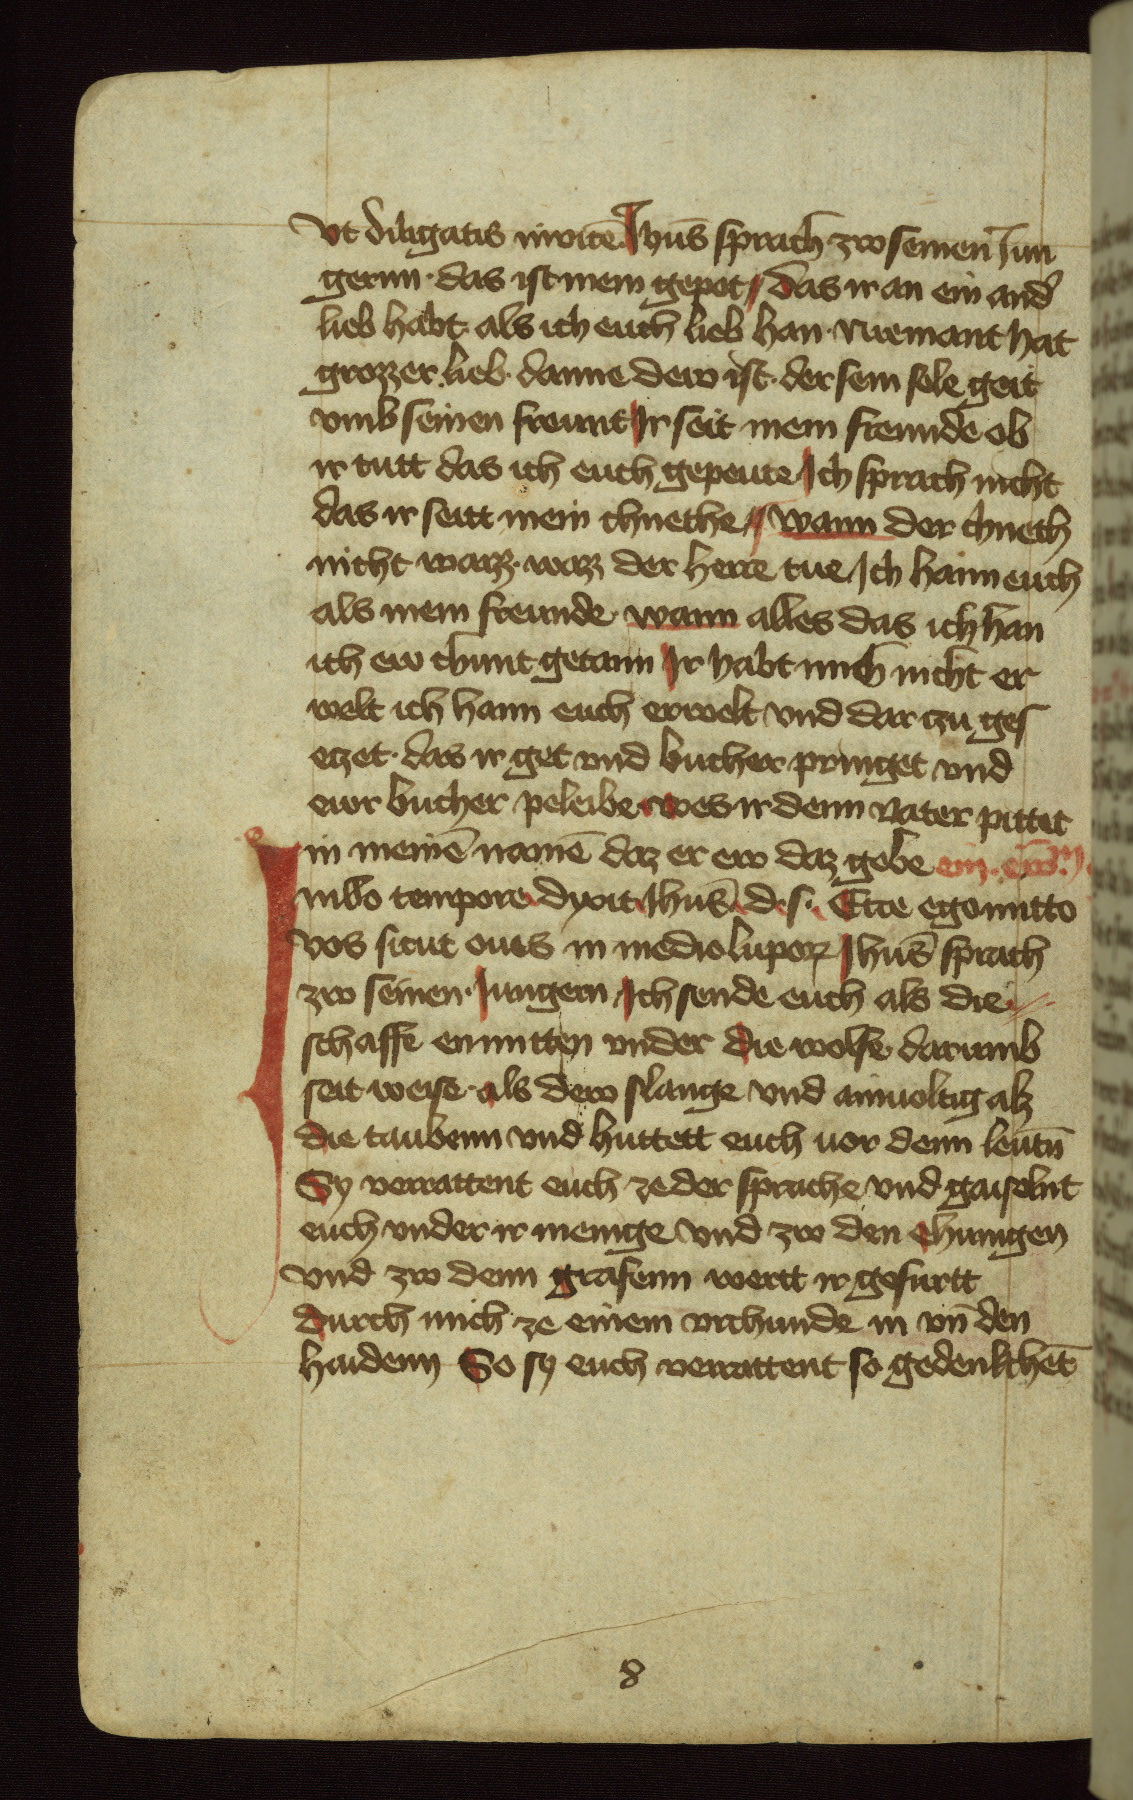 vt diligatis inuicē Jhūs sprach zw seinen Jun
gernn · das ist mein gepot das ir an ein and
lieb habt als ich euch lieb han · Niemant hat
grozzer lieb danne dew ist · der sein sele geit
vmb seinen freunt Ir seit mein freunde ob
ir tutt das ich euch gepeute Ich sprach nicht
das ir seitt mein chnethe wann der chneth
nicht waizz · waz der herre tue Ich hainn euch
als mein freunde · wann alles das ich han
ich ew chunt getann Ir habt mich nicht er
welt ich hann euch erwelt vnd dar czu ges
eczet · das ir get vnd bucher pringet vnd
ewr bucher peleibe wes ir denn vater pittet
in meinē namē daz er ew daz gebe
In illo tempore dyxit Jhūs d · s · Ecce ego mitto
vos sicut oues in medio lupoꝝ Jhūs sprach
zw seinen Jungern Ich sende euch als die
schaffe enmitten vnder die wolfe darumb
seit weise · als dew slange vnd ainuoltig alz
die taubenn vnd huttett euch uor denn leutñ
Sy verrattent euch ze der sprache vnd gaiselnt
euch vnder ir menige vnd zw den chunigen
vnd zw denn grafenn wertt ir gefurtt
durch mich ze einem vrchunde in vn̄ den
haidenn So sy euch verrattent so gedenkthēt
8